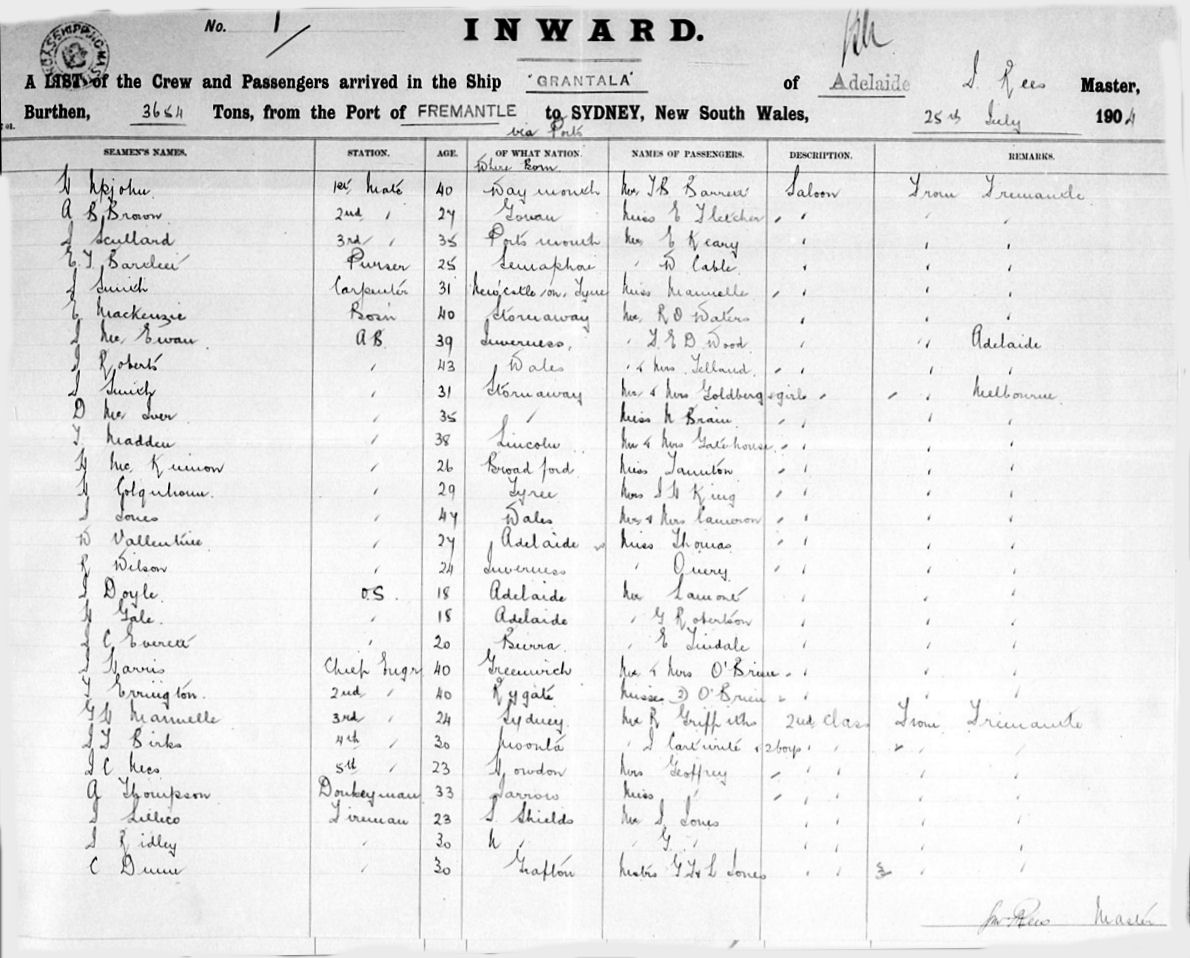 No. 1
INWARD.
A LIST of the Crew and Passengers arrived in the Ship "GRANTALA" of Adelaide J. Rees Master,
Burthen, 3654 Tons, from the Port of FREMANTLE to SYDNEY, New South Wales, 25th July 1904
via Ports
SEAMEN'S NAMES. STATION. AGE. OF WHAT NATION. NAMES OF PASSENGERS. DESCRIPTION. REMARKS.
Where Born
H Upjohn 1st Mate 40 Waymouth Mr T B Barrett Saloon From Fremantle
A B Brown 2nd " 27 Govan Miss E Fletcher " " " "
J Scullard 3rd " 35 Portsmouth Mr E Keary " " "
E. T Barclett Purser 25 Semaphore " W Cable " " "
J Smith Carpenter 31 Newcastle on Tyne Miss Manuelle " " " "
E Mackenzie Bosin 40 Stornaway Mr R O Waters " " "
J Mc Ewan A B 39 Inverness, " T E D Wood " " Adelaide
J Roberts " 43 Wales " & Mrs Telland " " " "
J Smith " 31 Stornaway Mr & Mrs Goldberg & girl " " " Melbourne
D Mc Iver " 35 " Miss M Brain " " " "
T. Madden " 38 Lincoln Mr & Mrs Gatehouse " " " "
H Mc Kinnon " 26 Broadford Miss Taunton " " " "
H Colquhoun " 29 Tyree Mrs J H King " " " "
J Jones " 47 Wales Mr & Mrs Cameron " " " "
W Vallentine " 27 Adelaide Miss Thomas " " " "
R Wilson " 24 Inverness " Query " " "
J Doyle O.S. 18 Adelaide Mr Lamont " " "
H Gale " 18 Adelaide " G Robertson " " "
J C Everett " 20 Burra " E Tindale " " "
J Harris Chief Engr 40 Greenwich Mr & Mrs O'Brien " " " "
T Errington 2nd " 40 Rygate Misses 2) O'Brien " " "
G H Manuelle 3rd " 24 Sydney Mr R Griffiths 2nd Class From Fremantle
J T Birks 4th " 30 Moonta " J Cartwrite & 2 boys " " " "
J C Mees 5th " 23 Howdon Mrs Geoffrey " " " " "
G Thompson Donkeyman 33 Jarrow Miss " " " " " "
J Lillico Fireman 23 S. Shields Mr J Jones " " " "
J Ridley " 30 N " " G " " " " "
C Dunn " 30 Grafton Mstrs G H & L Jones " " " "
Jno Rees Master